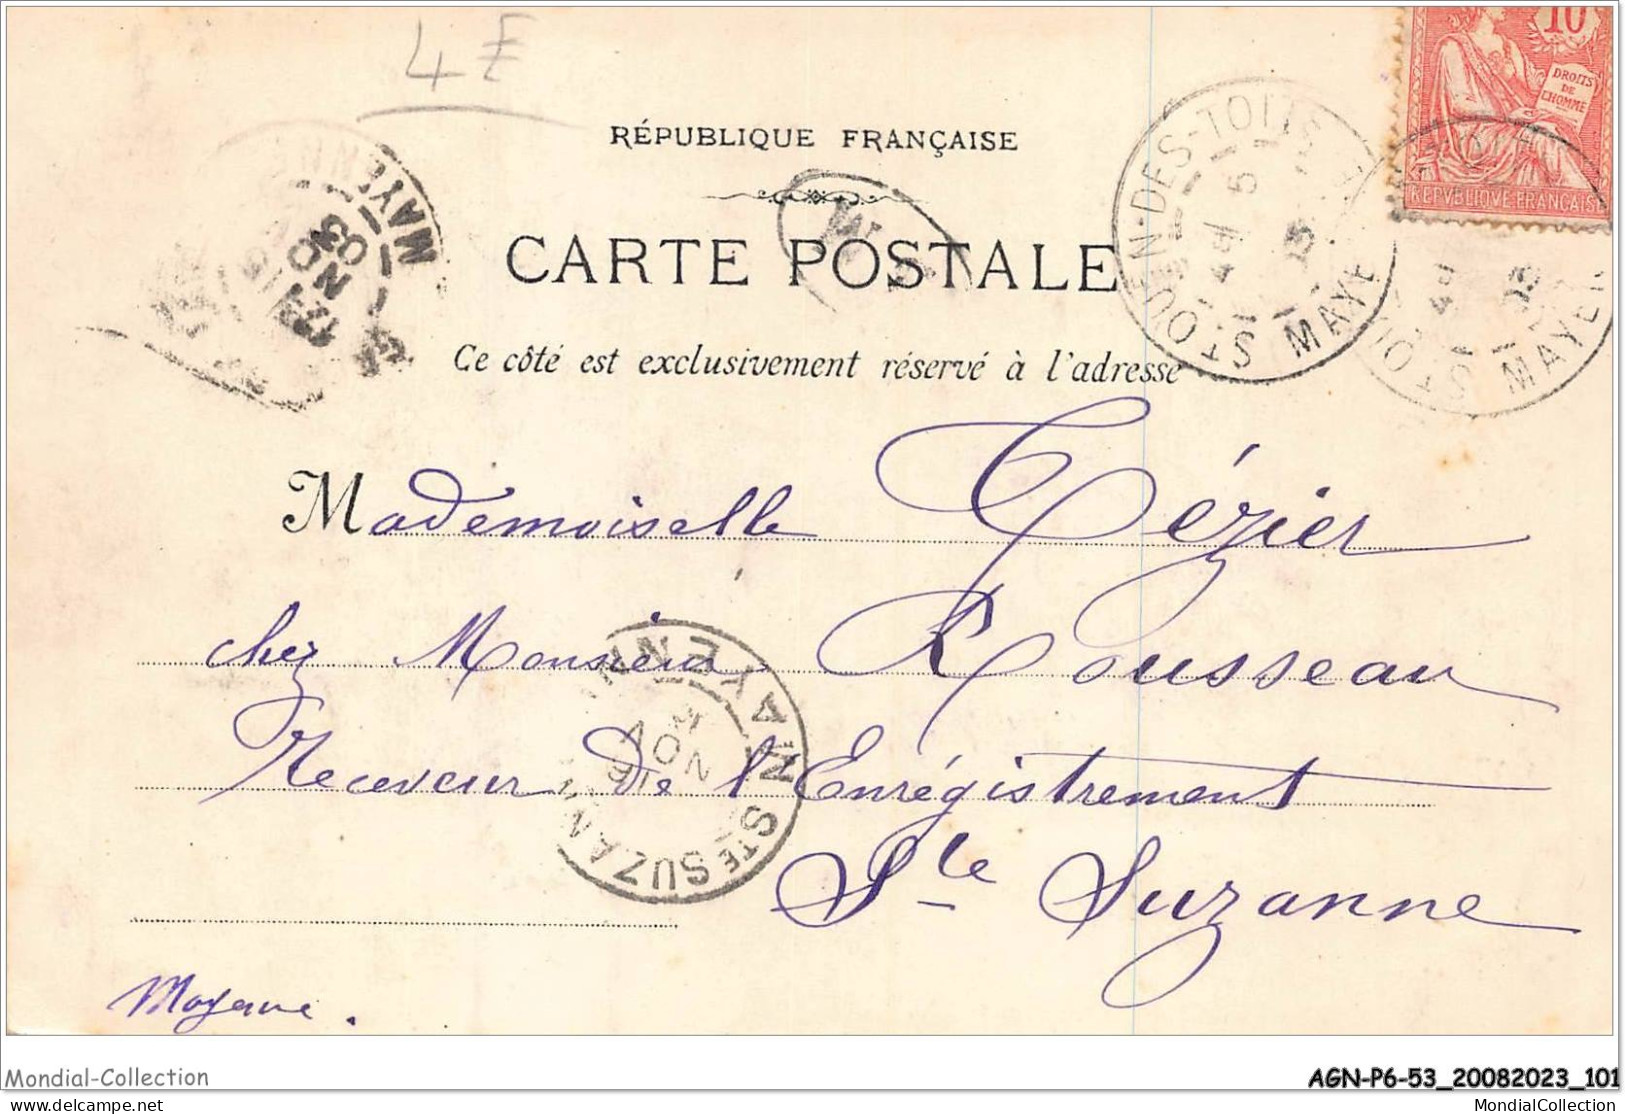 4 E
10
DROITS
DE
L'HOMME
REPVBLIQVE FRANÇAISE
RÉPUBLIQUE FRANÇAISE
CARTE POSTALE
Ce côté est exclusivement réservé à l'adresse
ST OUEN-DES-TOITS MAYENNE
ST OU MAYEN
MAYENNE
NO
03
Mademoiselle Cézier
chez Monsieur Rousseau
Receveur de l'Enrégistrement
Ste Suzanne
Mayenne.
STE SUZANNE MAYENNE
NOV
Mondial-Collection
AGN-P6-53_20082023_101
delcampe.net
MondialCollection